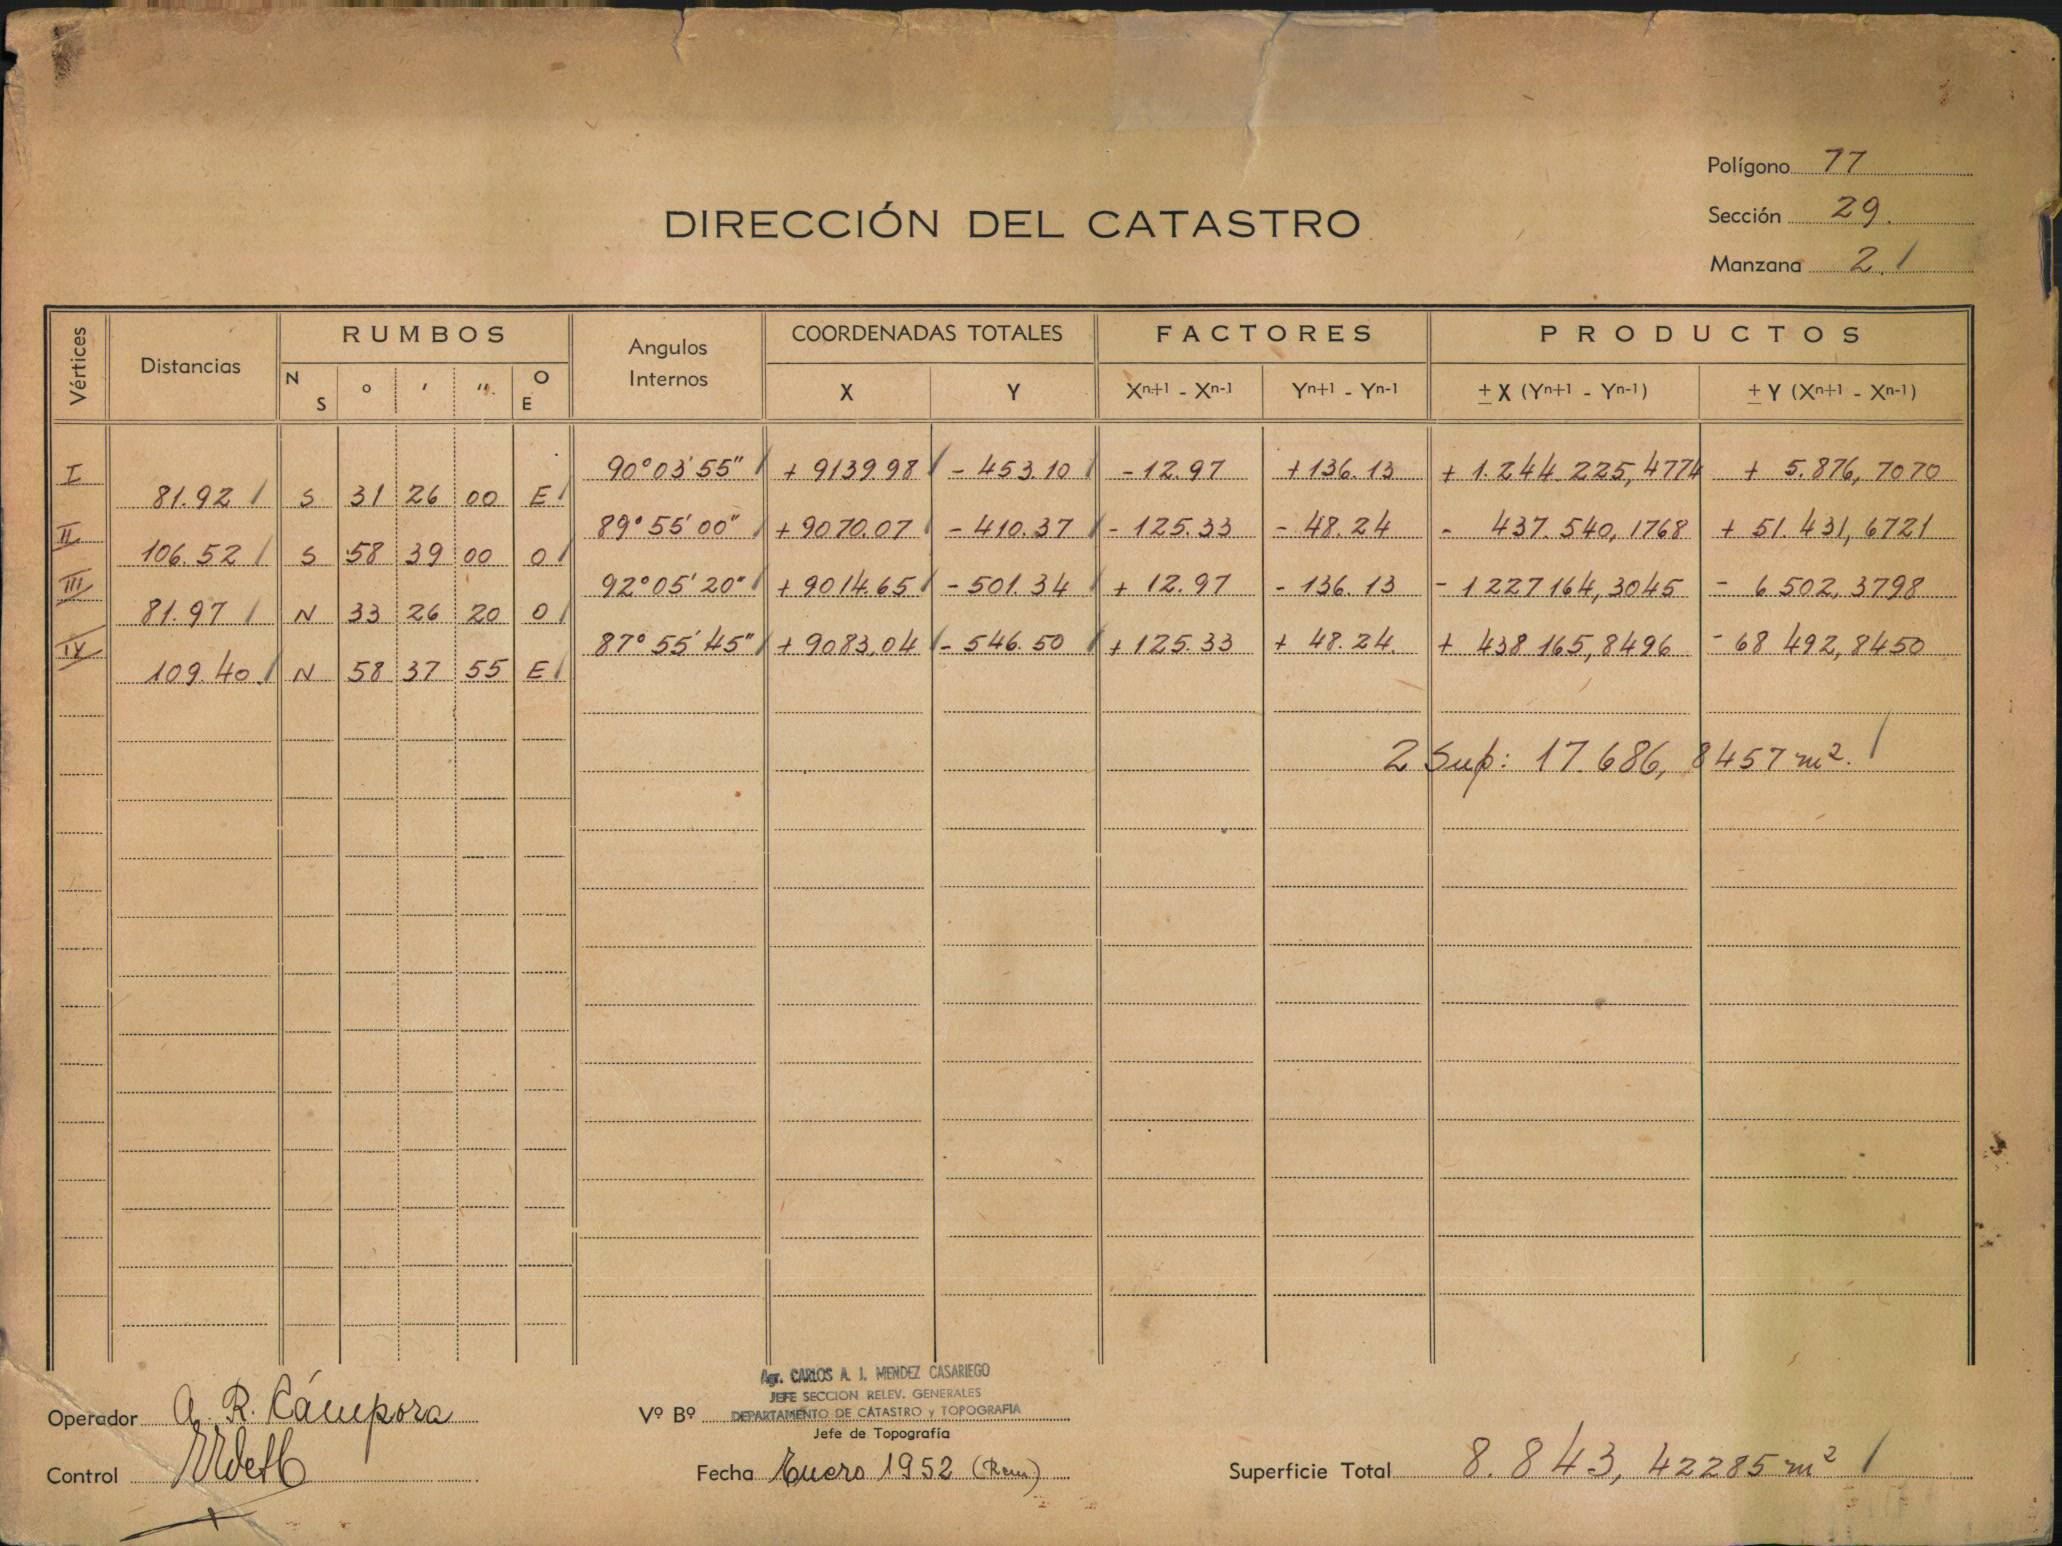 Polígono 77
DIRECCIÓN DEL CATASTRO
Sección 29.
Manzana 2.
Vértices Distancias RUMBOS Angulos Internos COORDENADAS TOTALES FACTORES PRODUCTOS
N S ° ' " O E X Y Xn+1 - Xn-1 Yn+1 - Yn-1 ± X (Yn+1 - Yn-1) ± Y (Xn+1 - Xn-1)
I 90°03'55" + 9139.98 - 453.10 - 12.97 + 136.13 + 1.244.225,4774 + 5.876,7070
81.92 S 31 26 00 E
II 89°55'00" + 9070.07 - 410.37 - 125.33 - 48.24 - 437.540,1768 + 51.431,6721
106.52 S 58 39 00 O
III 92°05'20" + 9014.65 - 501.34 + 12.97 - 136.13 - 1 227 164,3045 - 6 502,3798
81.97 N 33 26 20 O
IV 87°55'45" + 9083,04 - 546.50 + 125.33 + 48.24. + 438 165,8496 - 68 492,8450
109.40. N 58 37 55 E
2 Sup: 17.686,8457 m².
Agr. CARLOS A. J. MENDEZ CASARIEGO
JEFE SECCION RELEV. GENERALES
Operador A. R. Cámpora Vº Bº DEPARTAMENTO DE CATASTRO y TOPOGRAFIA
Jefe de Topografía
Control Fecha Enero 1952 (Rem) Superficie Total 8.843,42285 m²